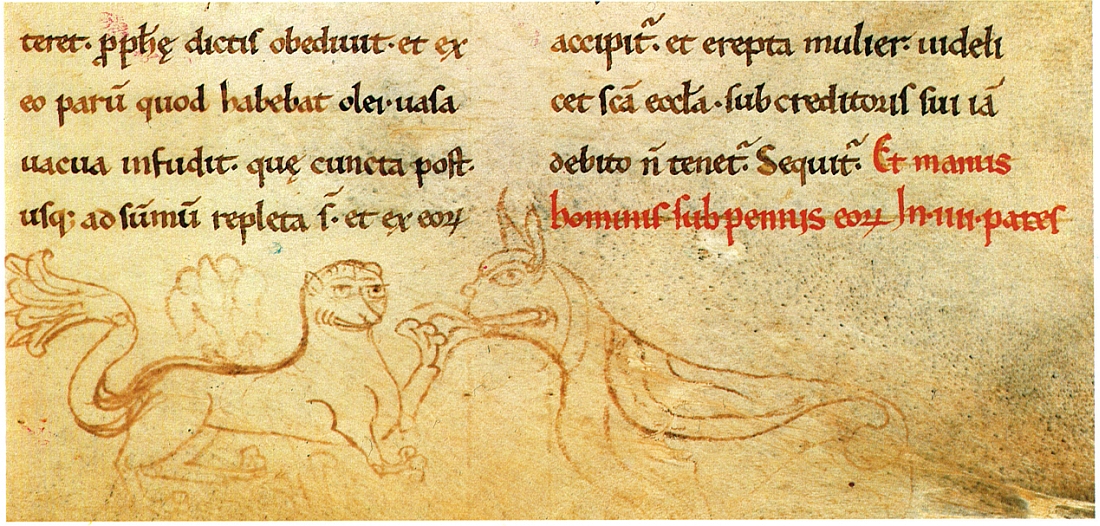 teret. ꝓph̄ę dictis obediuit. et ex
eo parū quod habebat olei. uasa
uacua infudit. quę cuncta post.
usq; ad sūmū repleta s̄. et ex eoꝝ
accipit᷑. et erepta mulier. uideli
cet sc̄a eccl̄a. sub creditoris sui iā
debito n̄ tenet᷑. Sequit᷑. Et manus
hominis sub pennis eoꝝ In .iiii. partes